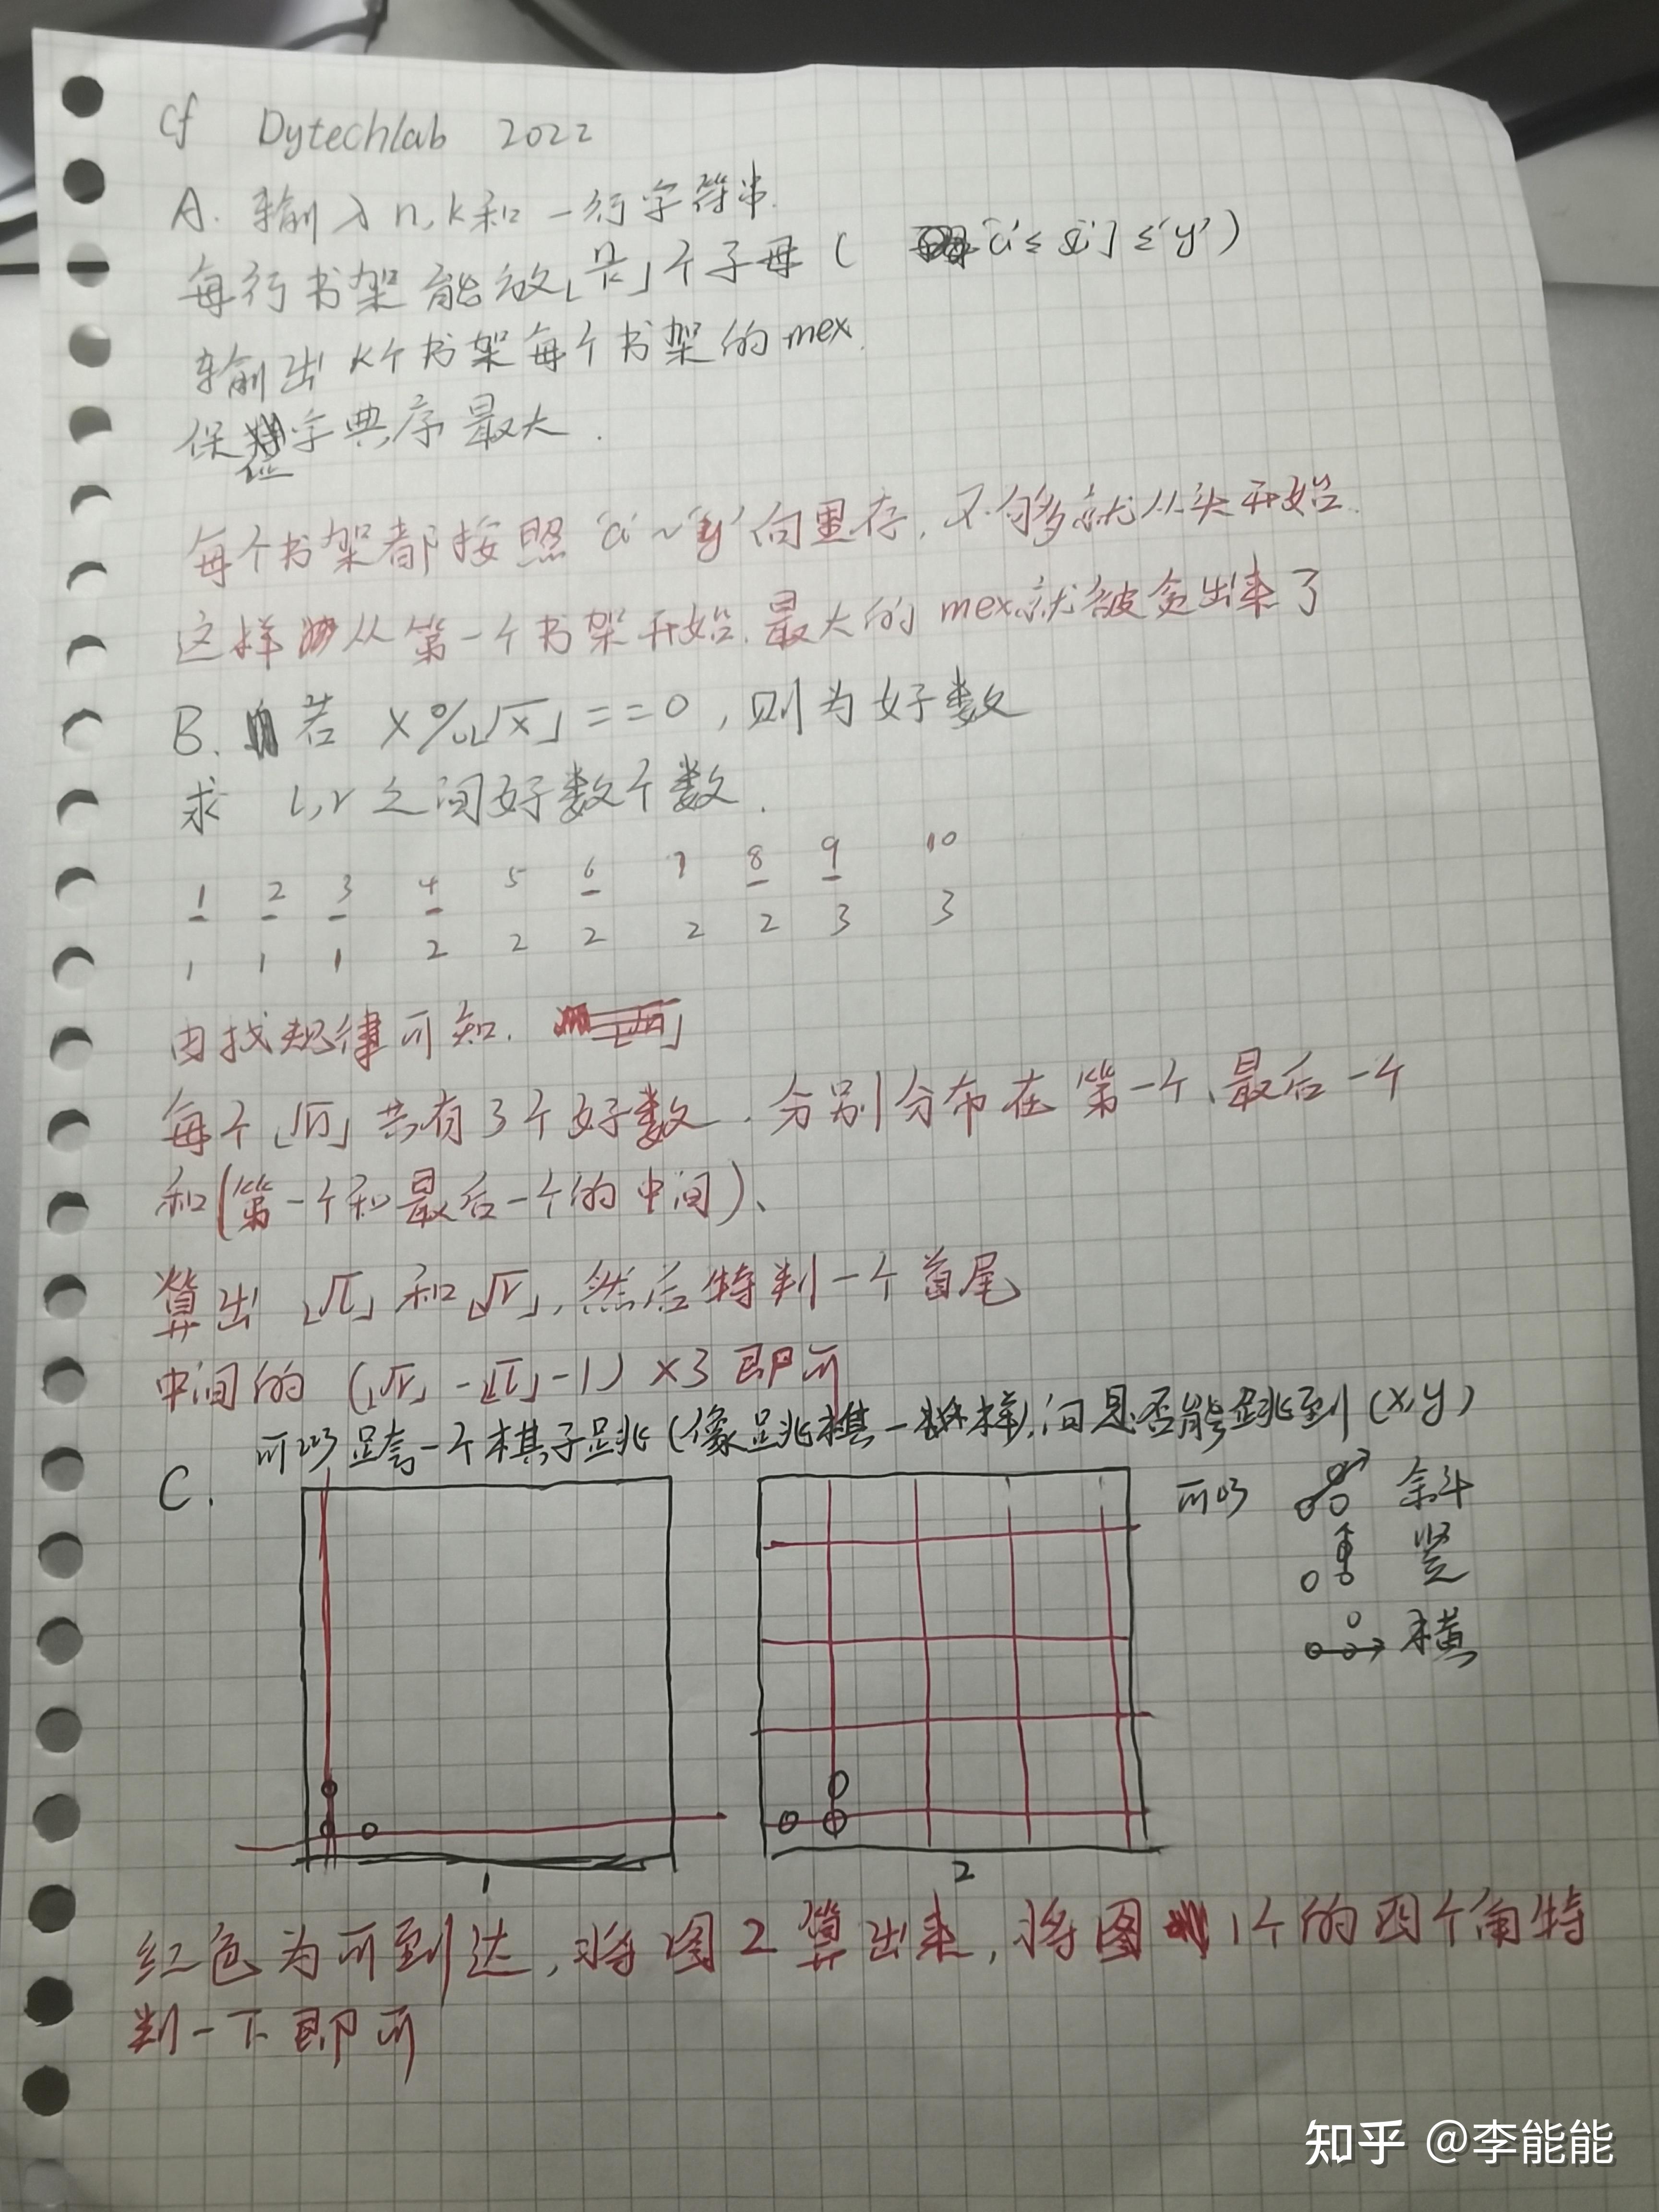 cf Dytechlab 2022
A. 输入 n, k 和一行字符串.
每行书架能放⌊n/k⌋个子母 ( 'a' ≤ s[i] ≤ 'y' )
输出 k个书架每个书架的 mex.
保证字典序最大.
每个书架都按照 'a' ~ 'y' 向里存, 不够就从头开始.
这样 从第一个书架开始. 最大的 mex就被贪出来了
B. 若 x % ⌊√x⌋ == 0, 则为好数
求 l, r 之间好数个数.
1 2 3 4 5 6 7 8 9 10
1 1 1 2 2 2 2 2 3 3
由找规律可知.
每个⌊√n⌋ 共有3个好数. 分别分布在第一个、最后一个
和(第一个和最后一个的中间)、
算出 ⌊√l⌋ 和 ⌊√r⌋, 然后特判一个首尾
中间的 (⌊√r⌋ - ⌊√l⌋ - 1) × 3 即可
可以跨一个棋子跳(像跳棋一样), 问是否能跳到 (x, y)
C.
可以 斜
竖
横
1 2
红色为可到达, 将图2算出来, 将图 1个的四个角特
判一下即可
知乎 @李能能